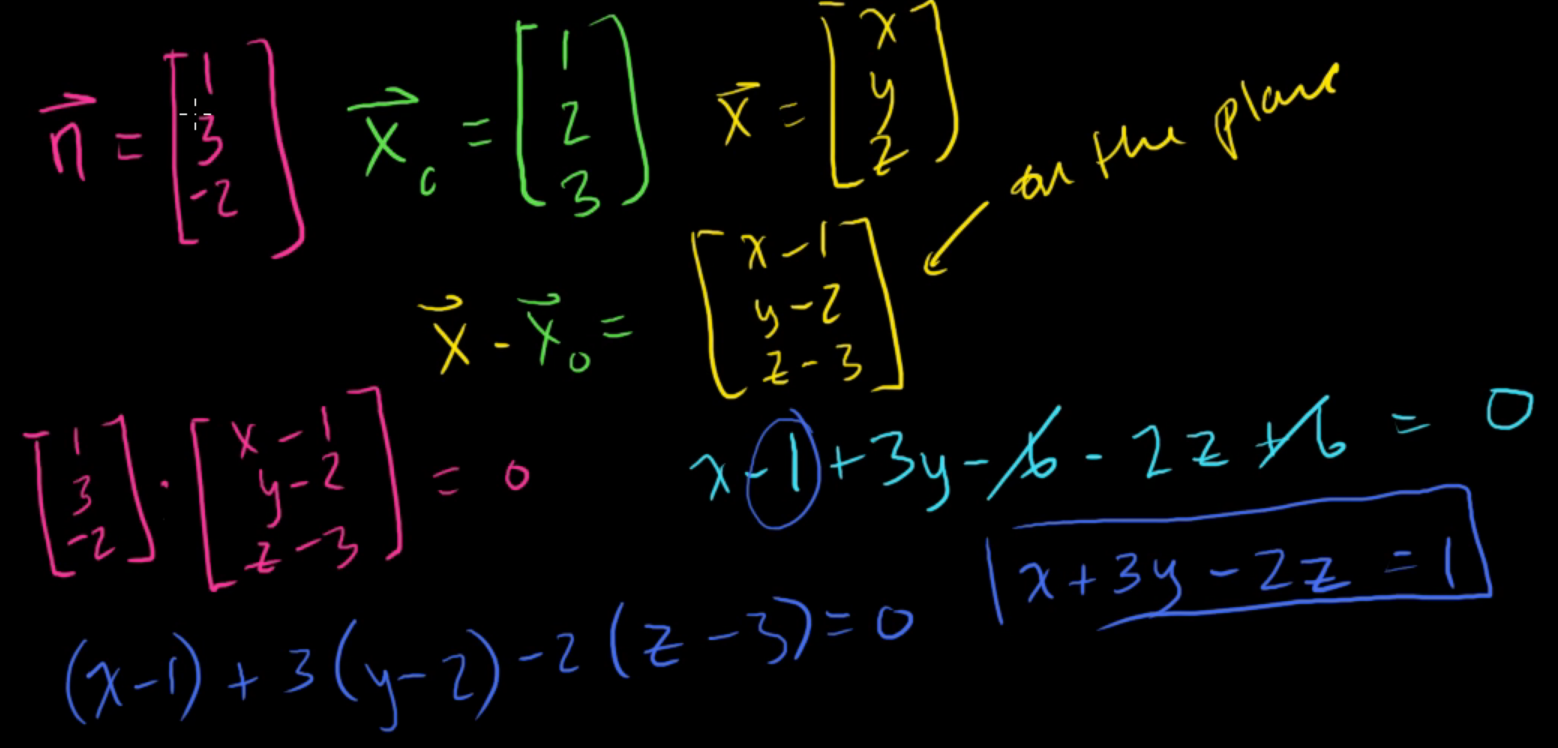 n⃗ = [1 3 -2] x⃗₀ = [1 2 3] x⃗ = [x y z]
on the plane
x⃗ - x⃗₀ = [x-1 y-2 z-3]
[1 3 -2] · [x-1 y-2 z-3] = 0
x-1+3y-6-2z+6 = 0
x+3y-2z = 1
(x-1)+3(y-2)-2(z-3)=0